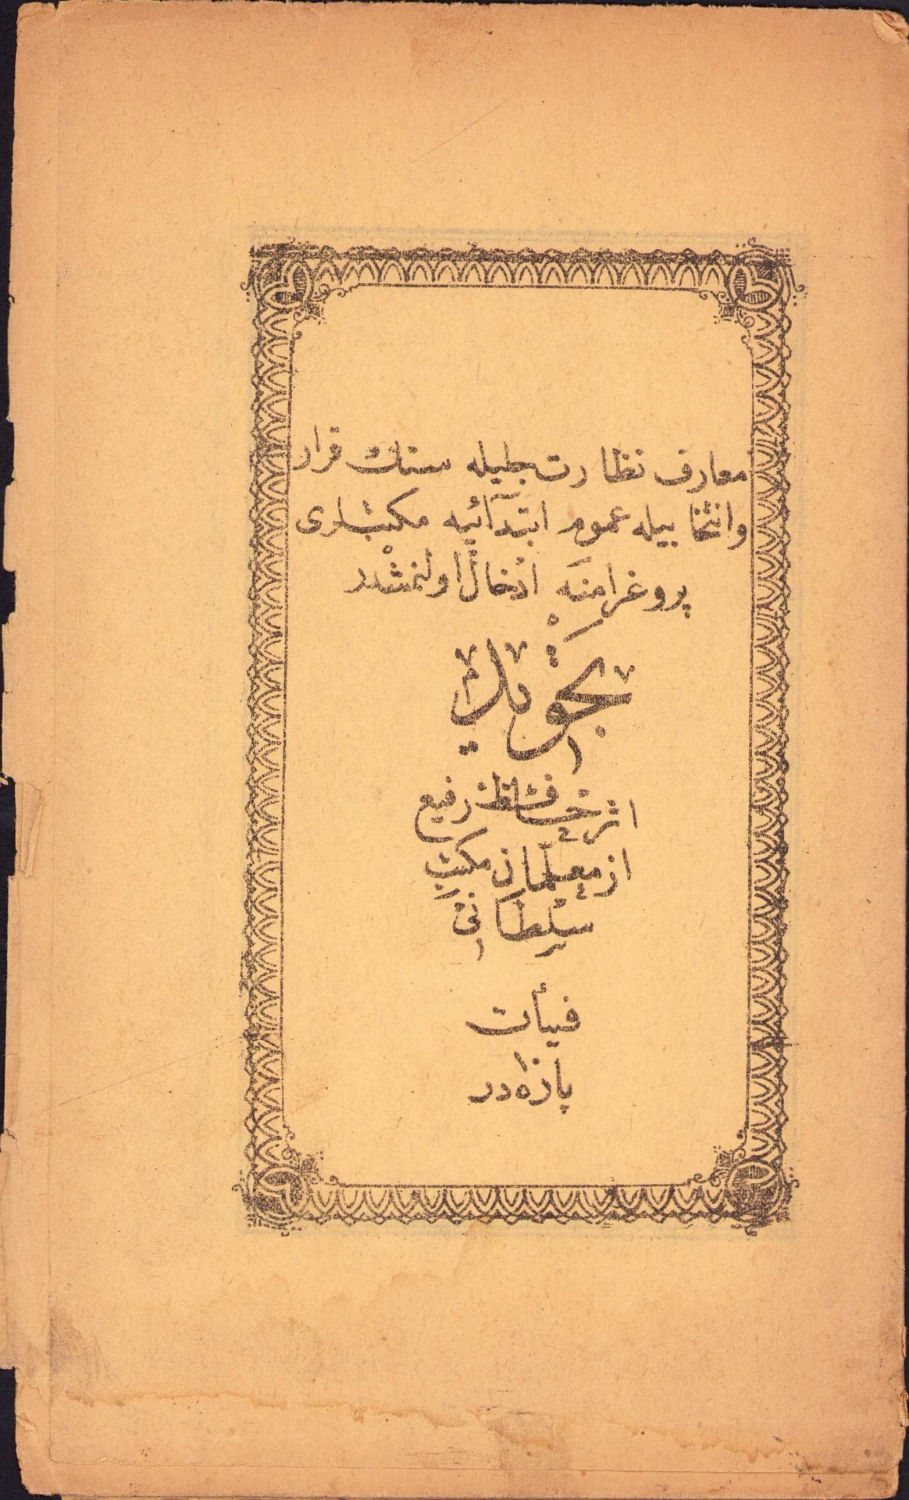 معارف نظارت جلیله سنك قرار
وانتخابیله عموم ابتدائیه مکتبلری
پروغرامنه ادخال اولنمشدر
تجوید
اثر حافظ رفیع
از معلمان مکتب
سلطانی
فیأت
۱۰
پاره در